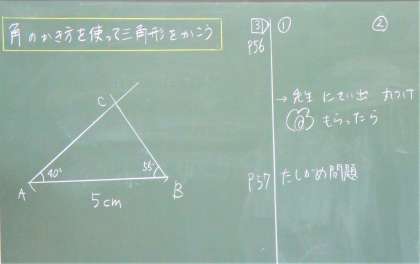 角のかき方を使って三角形をかこう
C
40°
55°
A
B
5cm
③ ① ②
P56
→ 先生 にてい出 丸つけ
もらったら
P57 たしかめ問題